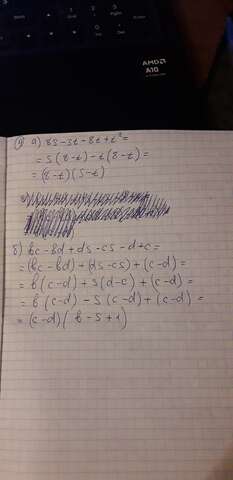 AMD
A10
① а) 8s - st - 8t + t² =
= s(8-t) - t(8-t) =
= (8-t)(s-t)
б) bc - bd + ds - cs - d + c =
= (bc - bd) + (ds - cs) + (c-d) =
= b(c-d) + s(d-c) + (c-d) =
= b(c-d) - s(c-d) + (c-d) =
= (c-d)(b - s + 1)